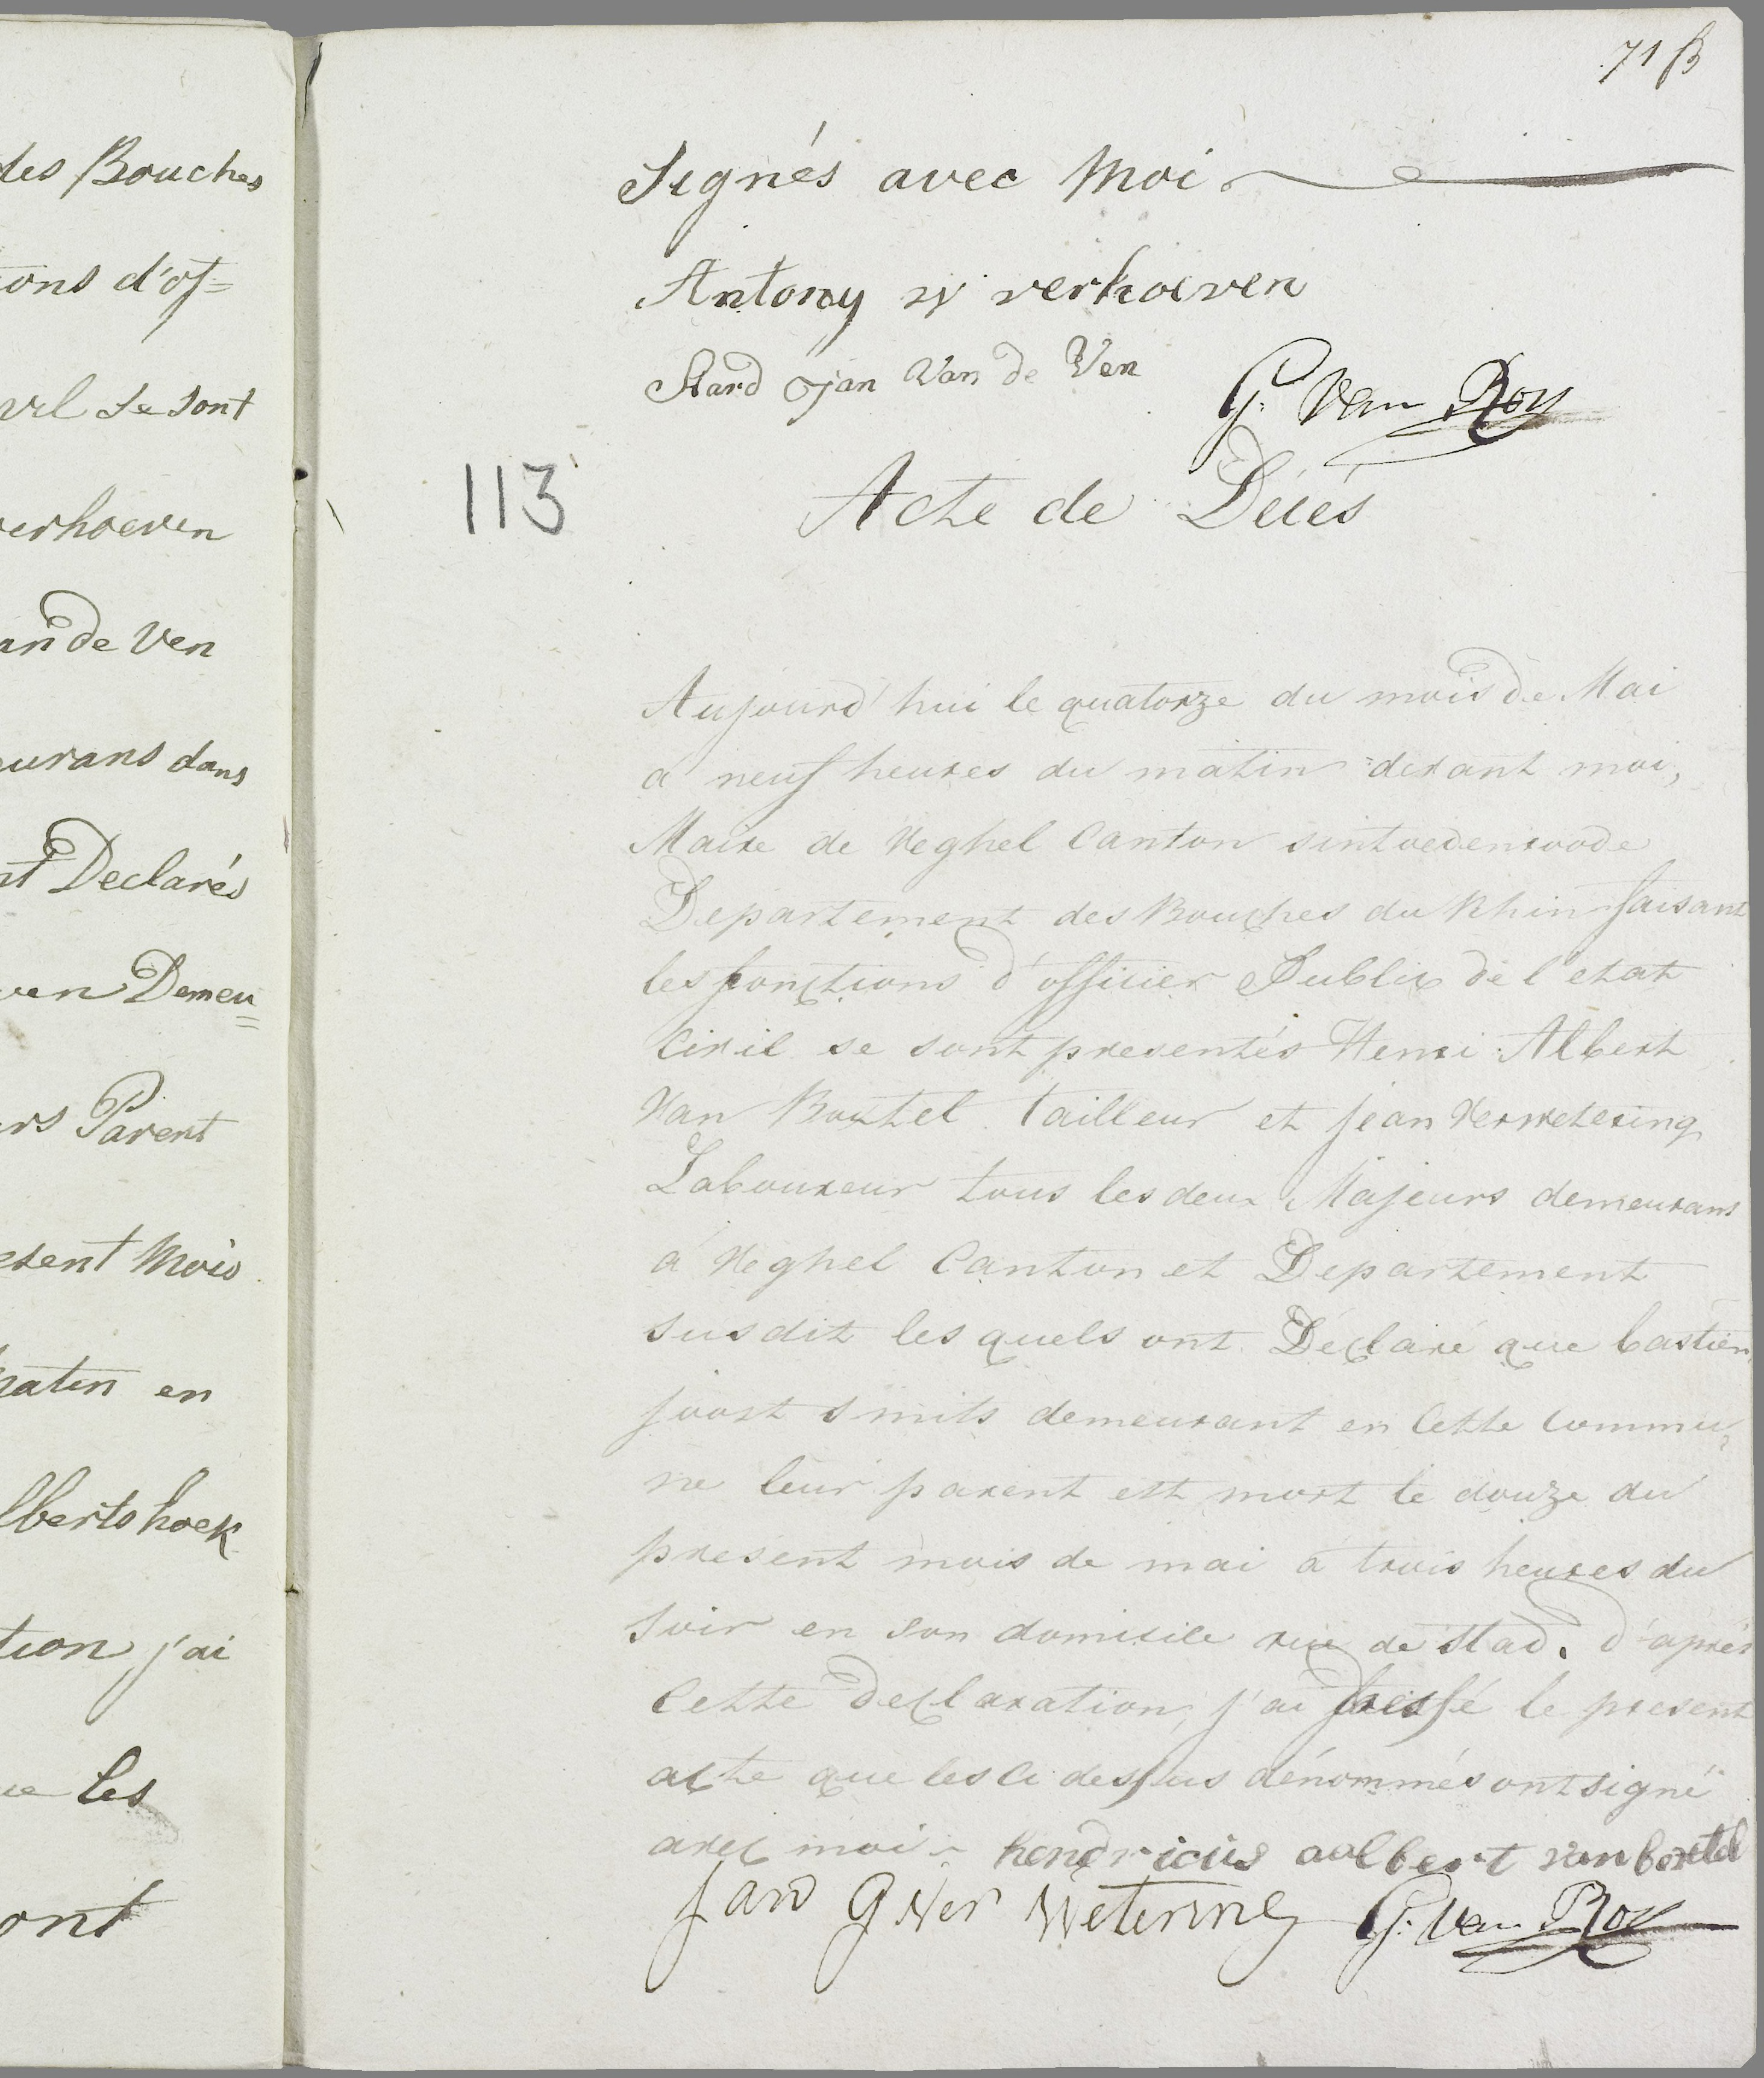 des Bouches
ons d'of=
vil se sont
verhoeven
an de Ven
eurans dans
nt Declarés
ven Demeu=
rs Parent
esent Mois
matin en
lberts hoek
tion j'ai
ue les
ont
71 B
Signés avec Moi
Antony verhoeven
Aard Jan Van de Ven
G. Van Roy
113
Acte de Décés
Aujourd'hui le quatorze du mois de Mai
a neuf heures du matin devant moi,
Maire de Veghel Canton sintoedenroode
Departement des Bouches du Rhin faisant
les fonctions d'officier Public de l'etat
Civil se sont presentés Henri Albert
Van Boxtel tailleur et Jean Verwetering
Laboureur tous les deux Majeurs demeurans
á Veghel Canton et Departement
susdit les quels ont Déclaré que bastien
joost smits demeurant en Cette Commu=
ne leur parent est mort le douze du
present mois de mai a trois heures du
soir en son domicile rue de stad. d'aprés
Cette Declaration, j'ai dressé le present
acte que les ci dessus dénommés ont signé
avec moi - hendricus aalbert van boxtel
Jan G Ver Wetering G. Van Roy